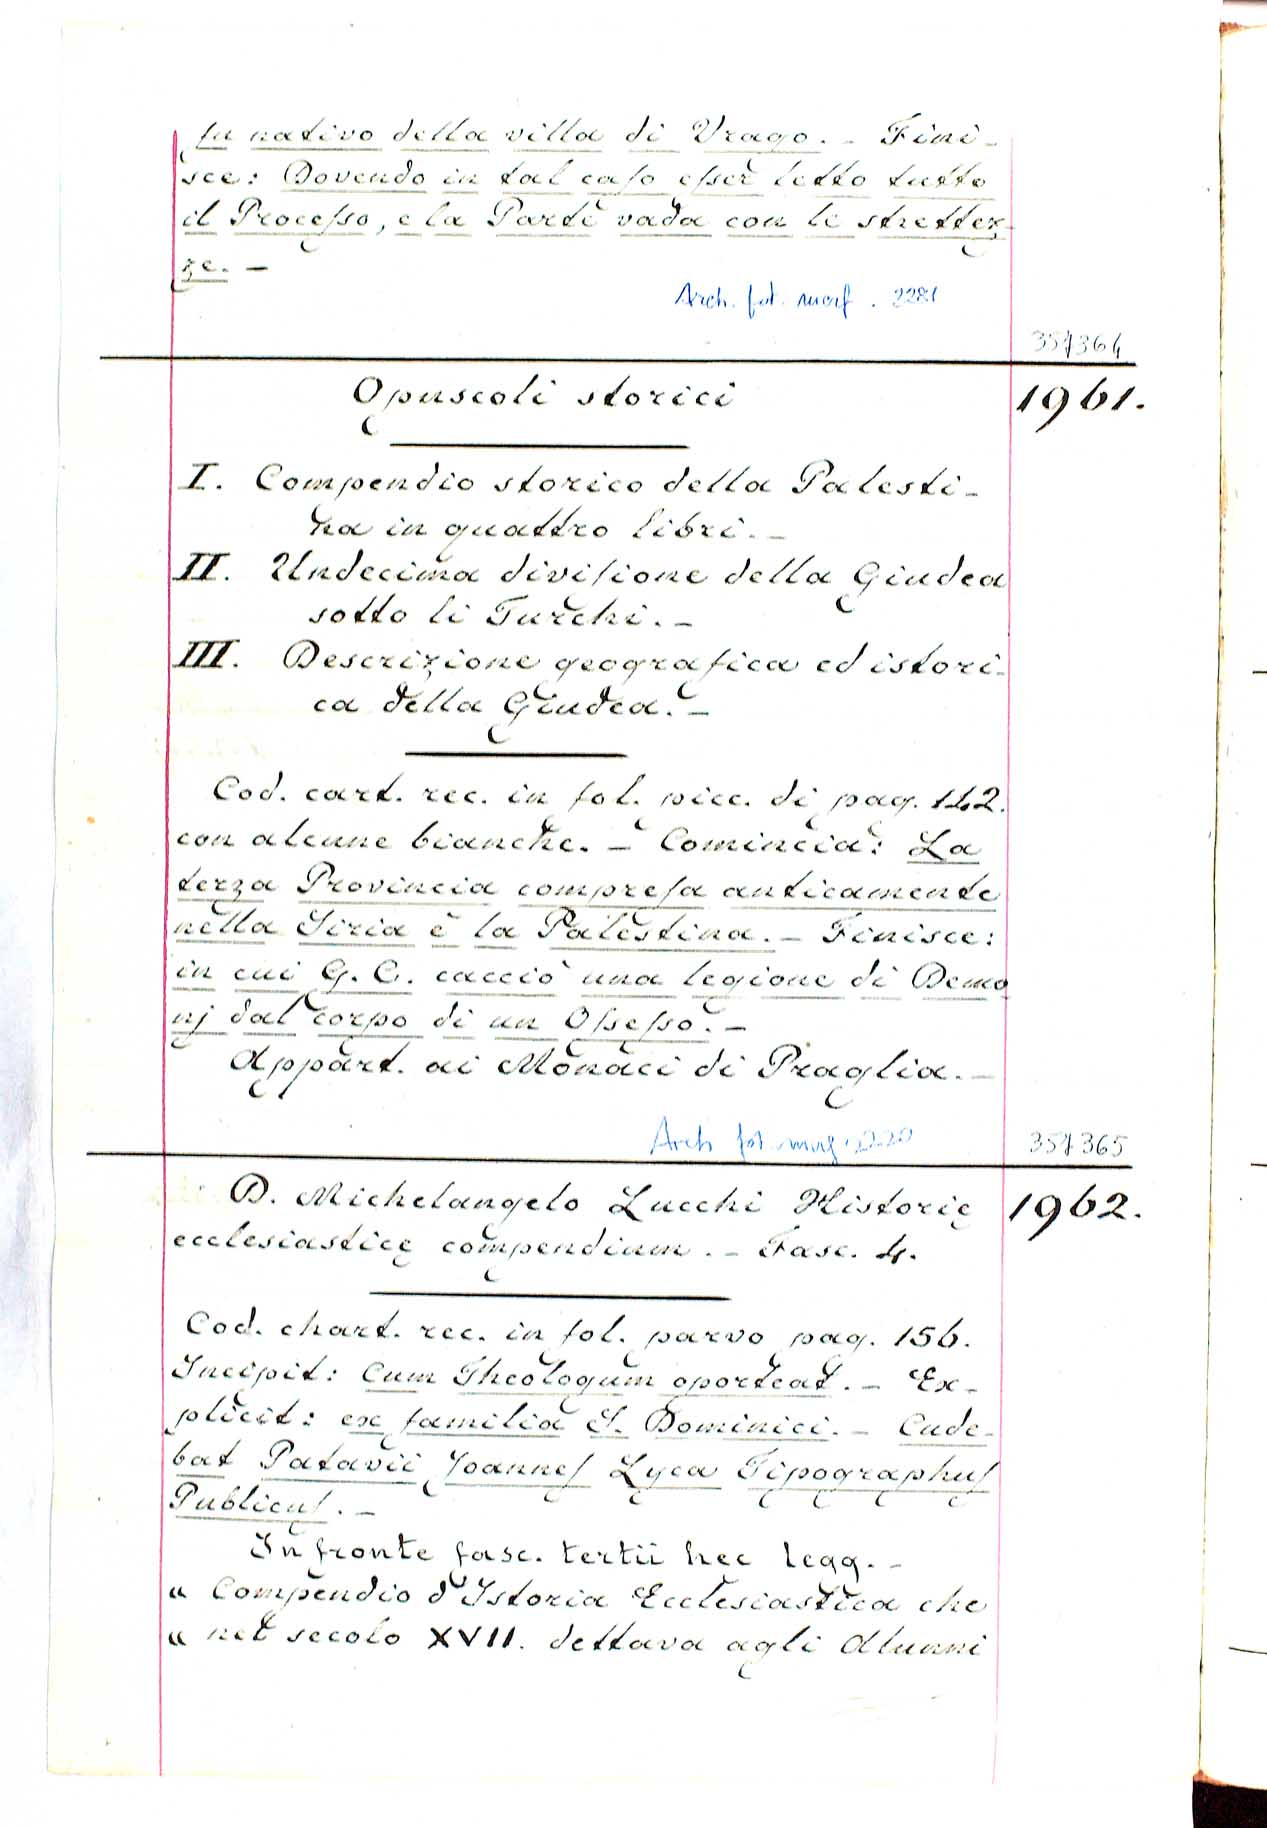 fu nativo della villa di Vrago. – Fini-
sce: Dovendo in tal caso esser letto tutto
il Processo, e la Parte vada con le strettez-
ze. –
Arch. fot. marf. 2281
357364
Opuscoli storici
1961.
I. Compendio storico della Palesti-
na in quattro libri. –
II. Undecima divisione della Giudea
sotto li Turchi. –
III. Descrizione geografica ed istori-
ca della Giudea. –
Cod. cart. rec. in fol. picc. di pag. 142.
con alcune bianche. – Comincia: La
terza Provincia compresa anticamente
nella Siria è la Palestina. – Finisce:
in cui G. C. cacciò una legione di Demo
nj dal corpo di un Ossesso. –
Appart. ai Monaci di Praglia. –
Arch fot.
357365
D. Michelangelo Lucchi Historię
1962.
ecclesiasticę compendium. – Fasc. 4.
Cod. chart. rec. in fol. parvo pag. 156.
Incipit: Cum Theologum oporteat. – Ex-
plicit: ex familia S. Dominici. – Cude-
bat Patavii Joannes Lyca Tipographus
Publicus. –
In fronte fasc. tertii hec legg. –
" Compendio d'Istoria Ecclesiastica che
" nel secolo XVII. dettava agli Alunni